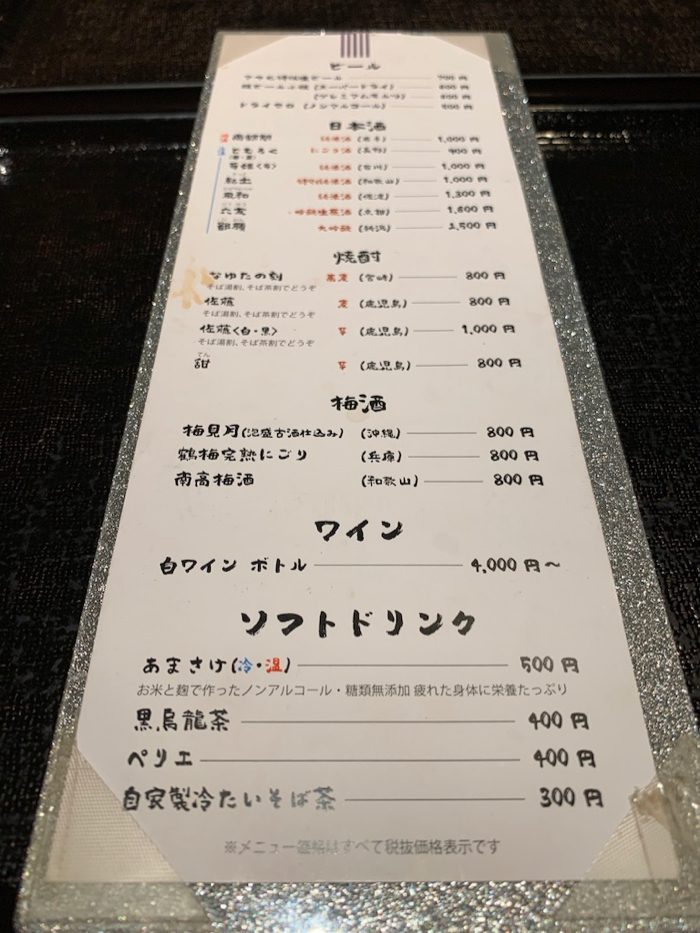 ビール
700 円
(スーパードライ) 600 円
(プレミアムモルツ) 600 円
ドライゼロ (ノンアルコール) 500 円
日本酒
南部関 純米酒 (岩手) 1,000 円
にごり酒 (長野) 900 円
純米酒 (石川) 1,000 円
紀土 特別純米酒 (和歌山) 1,000 円
純米酒 (佐渡) 1,300 円
吟醸生原酒 (京都) 1,600 円
大吟醸 (新潟) 2,500 円
焼酎
なゆたの刻 蕎麦 (宮崎) 800 円
そば湯割、そば茶割でどうぞ
佐藤 麦 (鹿児島) 800 円
そば湯割、そば茶割でどうぞ
佐藤〈白・黒〉 芋 (鹿児島) 1,000 円
そば湯割、そば茶割でどうぞ
てん
甜 芋 (鹿児島) 800 円
梅酒
梅見月(泡盛古酒仕込み) (沖縄) 800 円
鶴梅完熟にごり (兵庫) 800 円
南高梅酒 (和歌山) 800 円
ワイン
白ワイン ボトル 4,000 円〜
ソフトドリンク
あまさけ(冷・温) 500 円
お米と麹で作ったノンアルコール・糖類無添加 疲れた身体に栄養たっぷり
黒烏龍茶 400 円
ペリエ 400 円
自家製冷たいそば茶 300 円
※メニュー価格はすべて税抜価格表示です